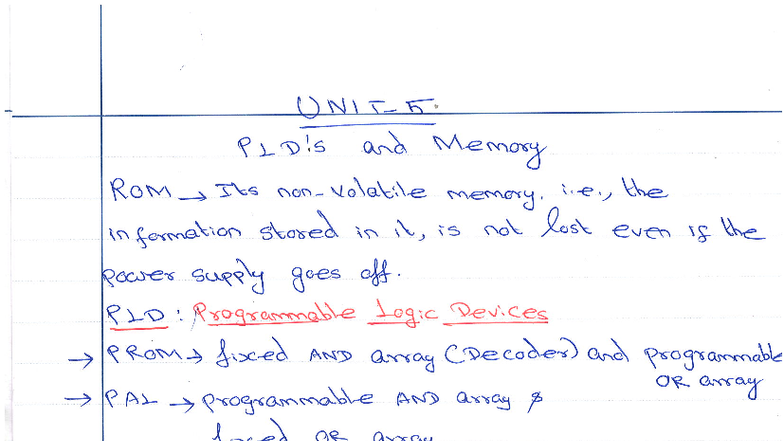 UNIT-5.
PLD's and Memory
ROM → Its non-volatile memory. i.e., the
information stored in it, is not lost even if the
power supply goes off.
PLD : Programmable Logic Devices
→ PROM → fixed AND array (Decoder) and programmable
OR array
→ PAL → programmable AND array &
fixed OR array